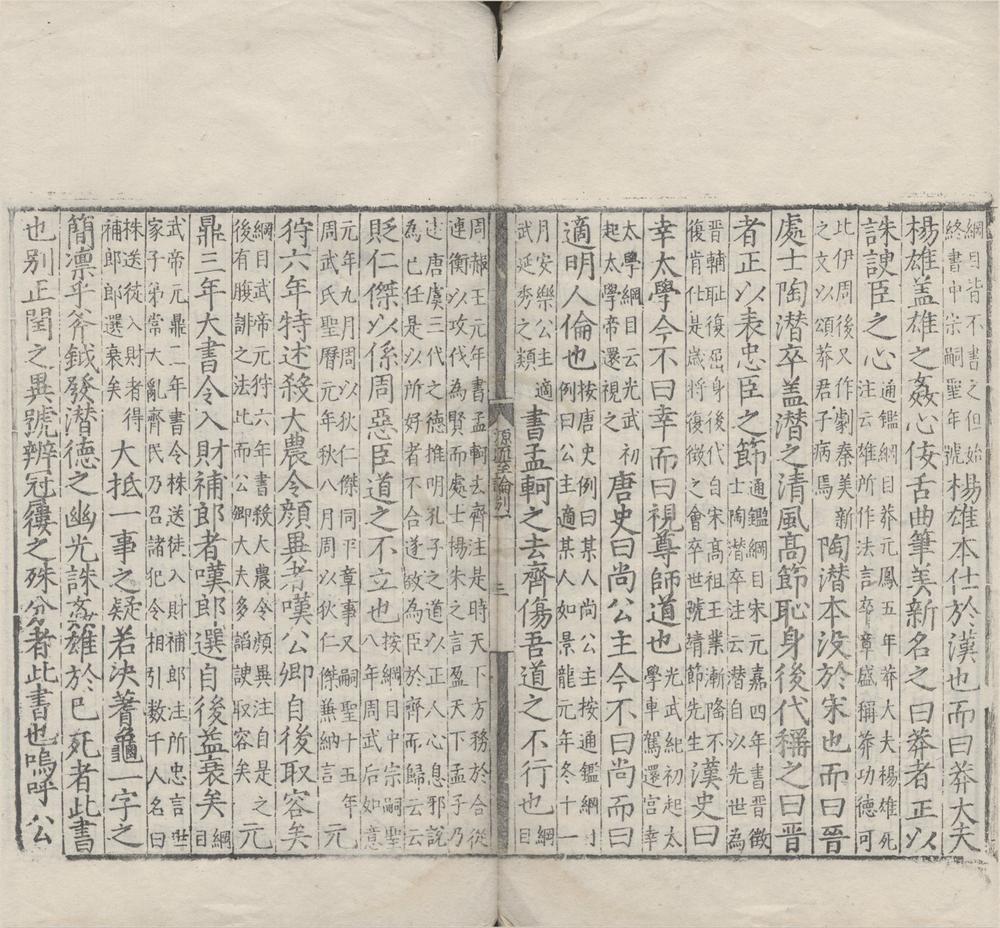 綱目皆不書之但始
終書中宗嗣聖年號
楊雄本仕於漢也而曰莽大夫
楊雄盖雄之姦心佞舌曲筆美新名之曰莽者正以
誅諛臣之心
通鑑綱目莽元鳳五年莽大夫楊雄死
注云雄所作法言卒章盛稱莽功德可
此伊周後又作劇秦美新
之文以頌莽君子病焉
陶潜本没於宋也而曰晉
處士陶潜卒盖潜之清風高節恥身後代稱之曰晋
者正以表忠臣之節
通鑑綱目宋元嘉四年書晋徵
士陶潜卒注云潜自以先世為
晉輔恥復屈身後代自宋高祖王業漸隆不
復肯仕是歳將復徵之會卒世號靖節先生
漢史曰
幸太學今不曰幸而曰視尊師道也
光武紀初起太
學車駕還宫幸
太學綱目云光武初
起太學帝還視之
唐史曰尚公主今不曰尚而曰
適明人倫也
按唐史例曰某人尚公主按通鑑綱目
例曰公主適某人如景龍元年冬十一
月安樂公主適
武延秀之類
書孟軻之去齊傷吾道之不行也
綱
目
源流至論別一
三
周赧王元年書孟軻去齊注是時天下方務於合從
連衡以攻伐為賢而處士揚朱之言盈天下孟子乃
述唐虞三代之德推明孔子之道以正人心息邪說
為已任是以所好者不合遂致為臣於齊而歸云云
貶仁傑以係周惡臣道之不立也
按綱目中宗嗣聖
八年周武后如意
元年九月周以狄仁傑同平章事又嗣聖十五年
周武氏聖曆元年秋八月周以狄仁傑兼納言
元
狩六年特述殺大農令顔異者嘆公卿自後取容矣
綱目武帝元狩六年書殺大農令頻異注自是之
後有腹誹之法比而公卿大夫多謟諛取容矣
元
鼎三年大書令入財補郎者嘆郎選自後益衰矣
綱
目
武帝元鼎二年書令株送徒入財補郎注所忠言世
家子弟常大亂齊民乃召諸犯令相引數千人名曰
株送徒入財者得
補郎郎選衰矣
大抵一事之疑若決蓍龜一字之
簡凛乎斧鉞發潜德之幽光誅姦雄於已死者此書
也别正閏之異號辨冠屨之殊分者此書也嗚呼公